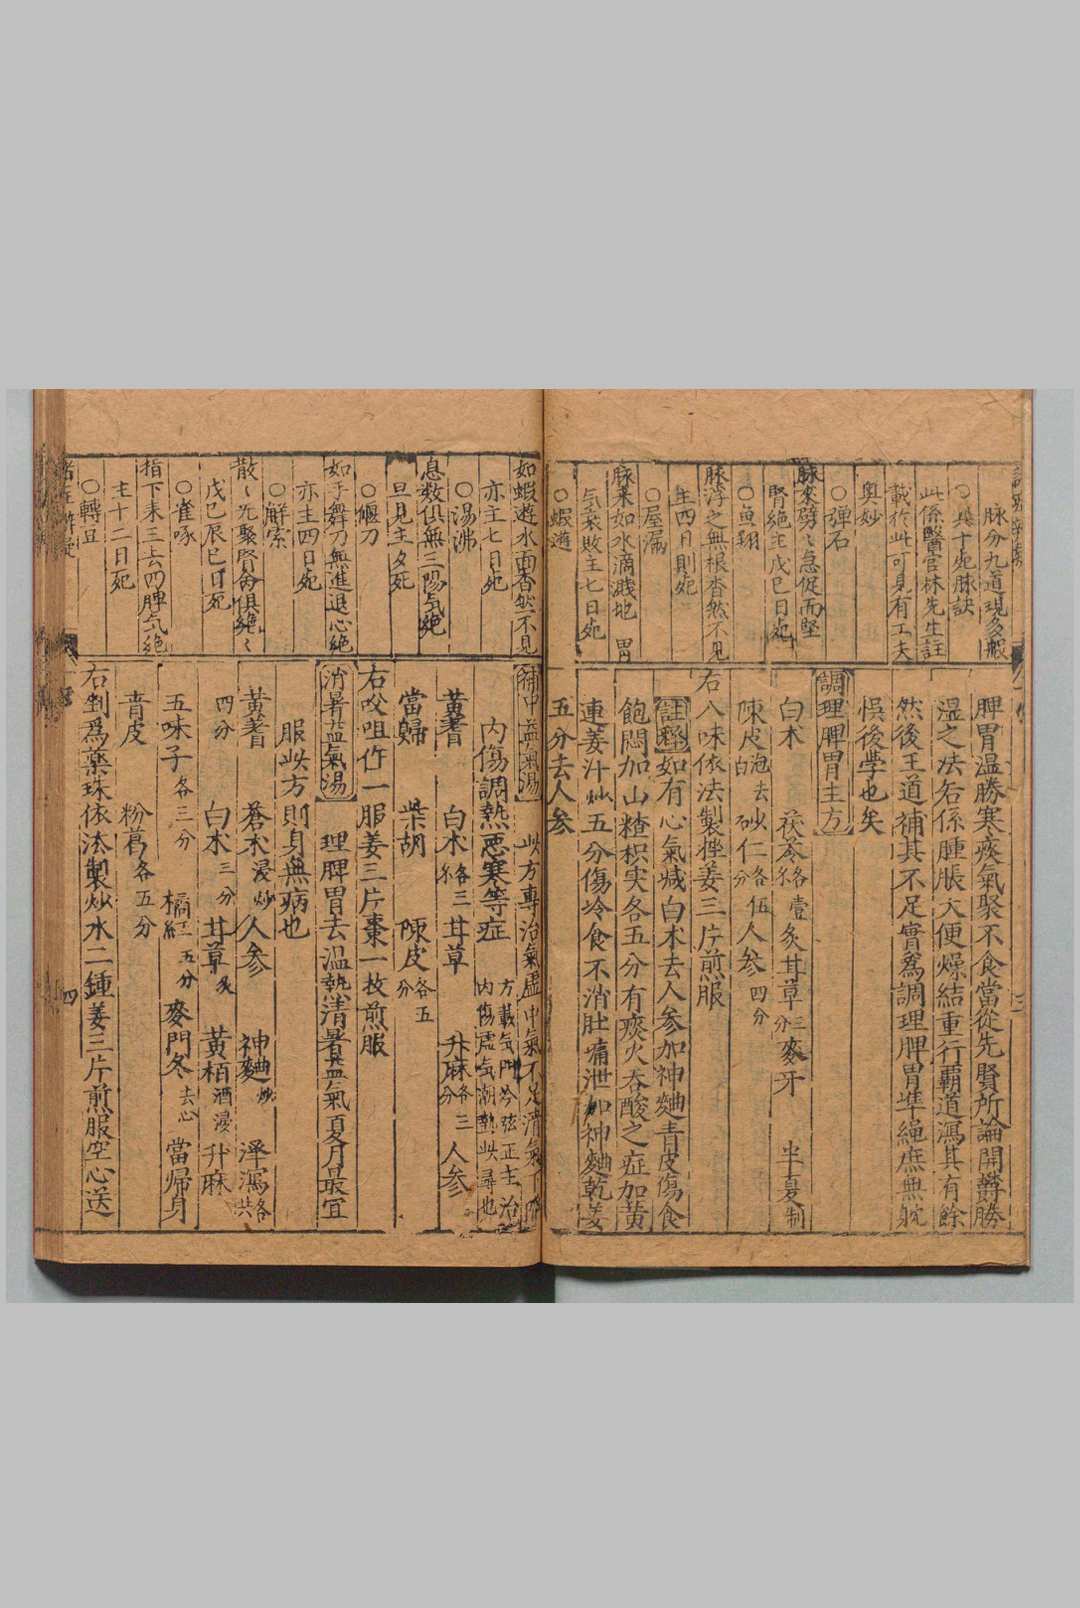 脉分九道現多般
○奧十死脉訣
此係醫官林先生註
載於此可見有工夫
奧妙
○彈石
脉來劈〻急促而堅
腎絕主戊巳日死
○魚翔
脉浮之無根杳然不見
主四日則死
○屋漏
脉來如水滴濺地 胃
气衰敗主七日死
○蝦遊
脾胃温勝寒痰氣聚不食當從先賢所論開鬱勝
湿之法若係腫脹大便燥結重行覇道瀉其有餘
然後王道補其不足實爲調理脾胃準繩庶無躭
悞後學也矣
調理脾胃主方
白术 茯苓各壹 炙甘草三分 麥牙 半夏制
陳皮泡去白 砂仁各伍分 人参四分
右八味依法製捶姜三片煎服
註釋 如有心氣減白术去人参加神麯青皮傷食
飽悶加山楂枳实各五分有痰火吞酸之症加黄
連姜汁炒五分傷冷食不消肚痛泄加神麯乾姜
五分去人参
如蝦遊水面杳然不見
亦主七日死
○湯沸
息数俱無三陽气絕
旦見主夕死
○偃刀
如手舞刀無進退心絕
亦主四日死
○解索
散〻先聚腎命俱絕〻
戊巳辰巳日死
○雀啄
指下來三去四脾气絕
主十二日死
○轉豆
補中益氣湯 此方專治氣虛中氣不足清氣下陷
內傷調熱悪寒等症 方載气門吟弦正主治內傷虛气潮熱此尋也
黄蓍 白术各三 甘草 升麻各三分 人参
當歸 柴胡 陳皮各五分
右咬咀作一服姜三片棗一枚煎服
消暑益氣湯 理脾胃去温熱清暑益氣夏月最宜
服此方則身無病也
黄蓍 蒼术浸炒 人参 神麯炒 澤瀉各
四分 白术三分 甘草炙 黄栢酒浸 升麻
五味子各三分 橘紅五分 麥門冬去心 當帰身
青皮 粉葛各五分
右剉爲藥珠依法製炒水二鍾姜三片煎服空心送
四